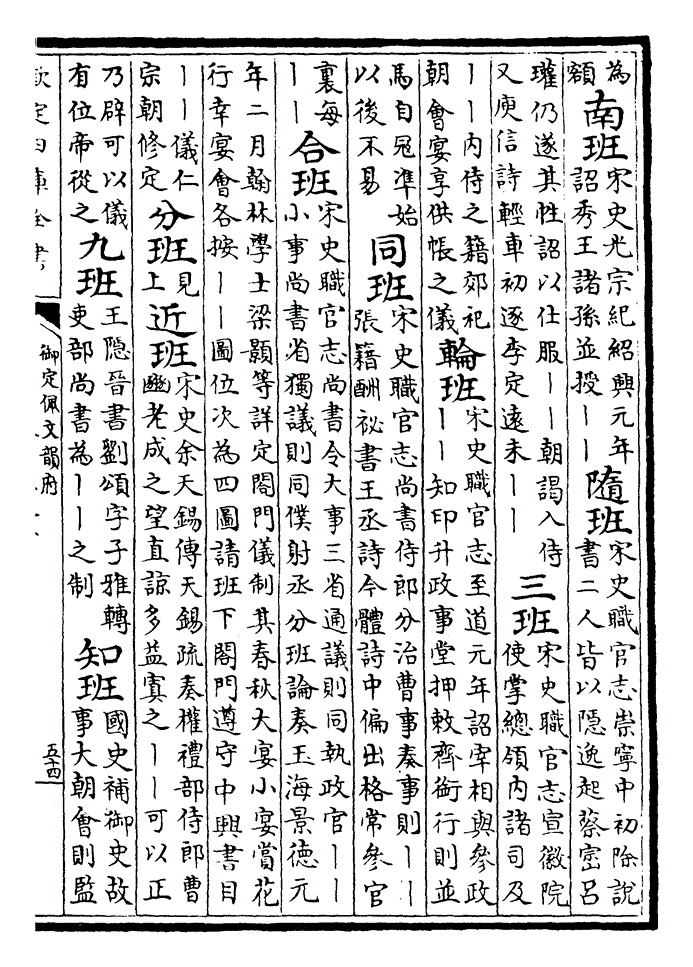 為額南班宋史光宗紀紹興元年詔秀王諸孫並授｜｜隨班宋史職官志崇寧中初除說書二人皆以隱逸起蔡崈呂
瓘仍遂其性詔以仕服｜｜朝謁入侍又庾信詩輕車初逐李定遠未｜｜三班宋史職官志宣徽院使掌總領内諸司及
｜｜内侍之籍郊祀朝會宴享供帳之儀輪班宋史職官志至道元年詔宰相與參政｜｜知印升政事堂押敕齊銜行則並
馬自冦準始以後不易同班宋史職官志尚書侍郎分治曹事奏事則｜｜張籍酬祕書王丞詩今體詩中偏出格常參官
裏每｜｜合班宋史職官志尚書令大事三省通議則同執政官｜｜小事尚書省獨議則同僕射丞分班論奏玉海景德元
年二月翰林學士梁顥等詳定閤門儀制其春秋大宴小宴賞花行幸宴會各按｜｜圖位次為四圖請班下閣門遵守中興書目
｜｜儀仁宗朝修定分班見上近班宋史余天錫傳天錫疏奏權禮部侍郎曹豳老成之望直諒多益寘之｜｜可以正
乃辟可以儀有位帝從之九班王隱晉書劉頌字子雅轉吏部尚書為｜｜之制知班國史補御史故事大朝會則監
欽定四庫全書
御定佩文韻府
五十四